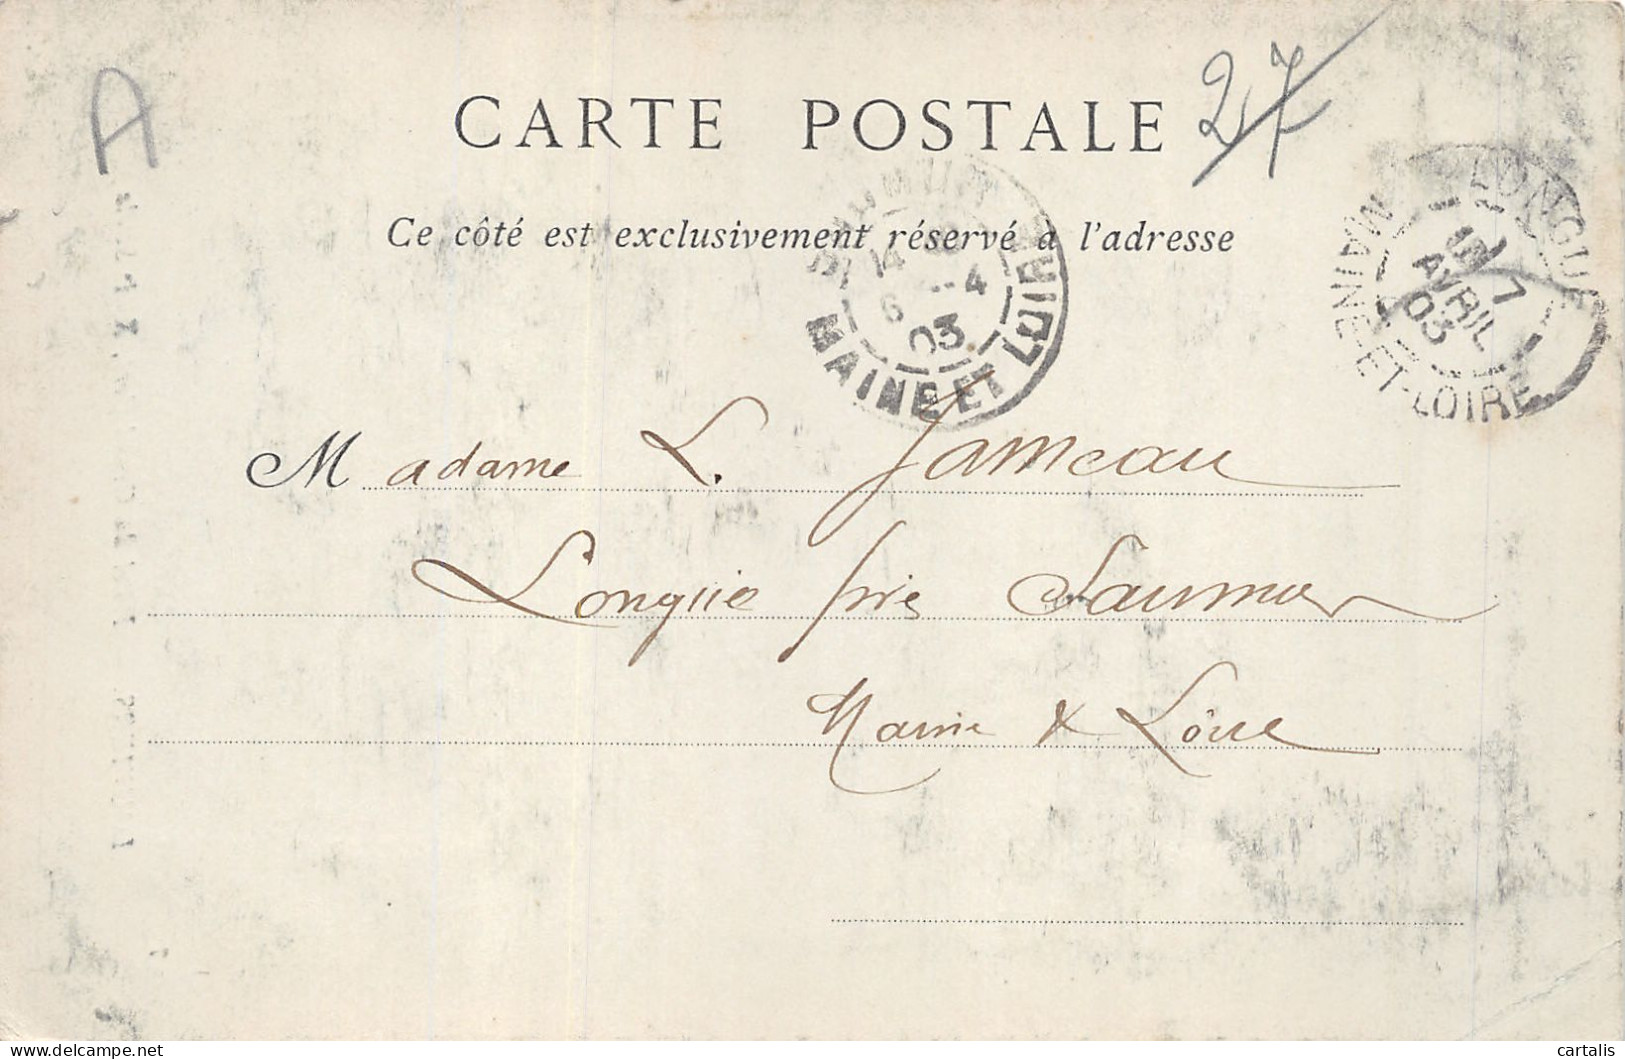 A
CARTE POSTALE
27
Ce côté est exclusivement réservé à l'adresse
14
6 -4
03
MAINE ET LOIRE
LONGUÉ
7
AVRIL
03
MAINE-ET-LOIRE
Madame L. Jameau
Longué près Saumur
Maine & Loire
delcampe.net
cartalis